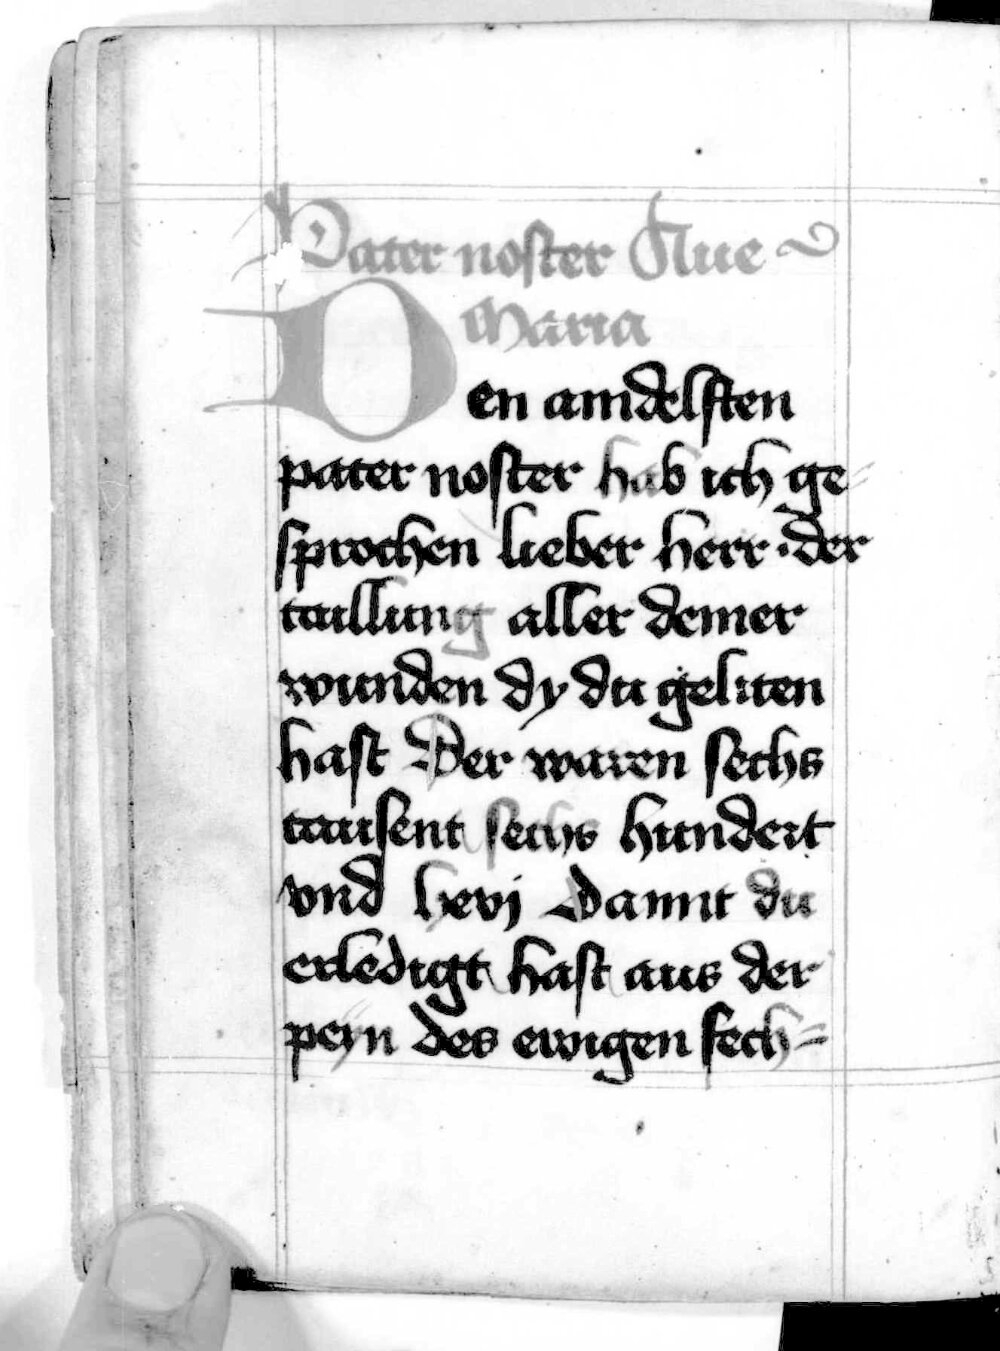 Pater noster Aue
Maria
Den aindelften
pater noster hab ich ge
sprochen lieber herr · der
taillung aller deiner
wunden dy du geliten
hast Der waren sechs
tausent sechs hundert
vnd lxvj Damit du
erledigt hast aus der
peyn des ewigen sech=